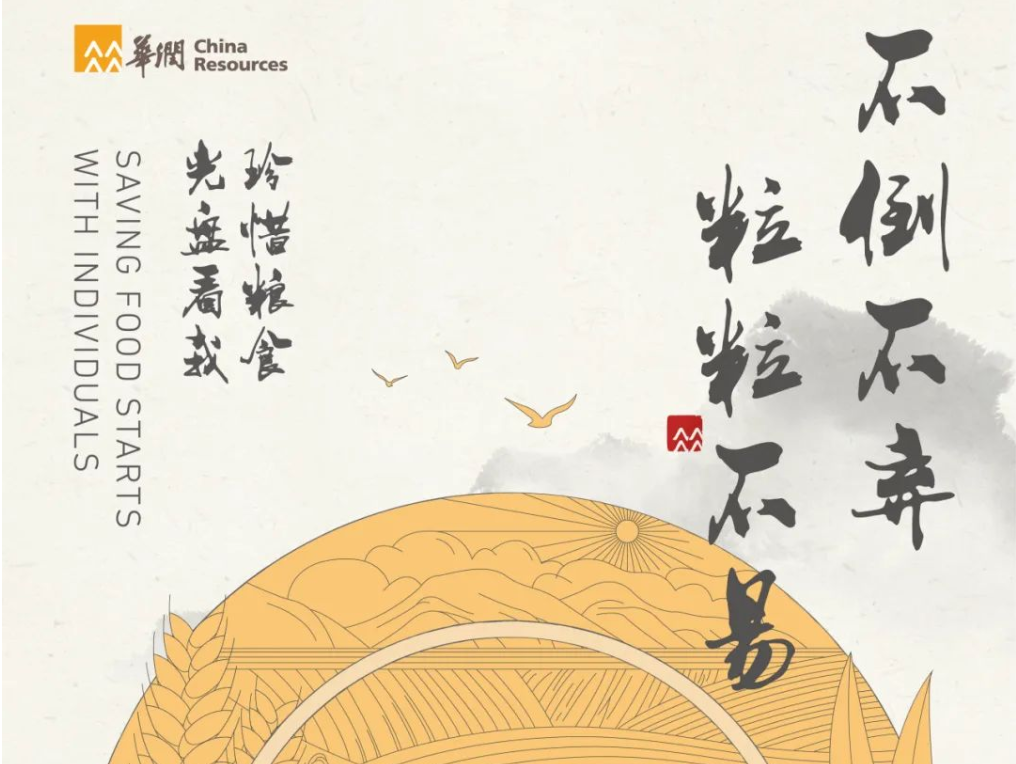 華潤
China
Resources
不倒不弃
粒粒不易
珍惜粮食
光盘看我
SAVING FOOD STARTS
WITH INDIVIDUALS